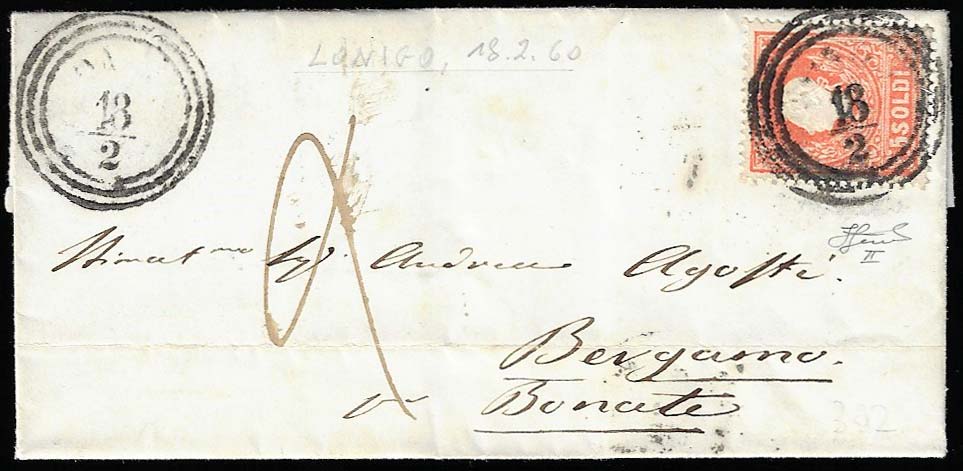 LONIGO, 18.2.60
18
2
18
2
5 SOLDI
Stimat.mo Sig.r Andrea Agosti
Bergamo.
Bonate
II
392